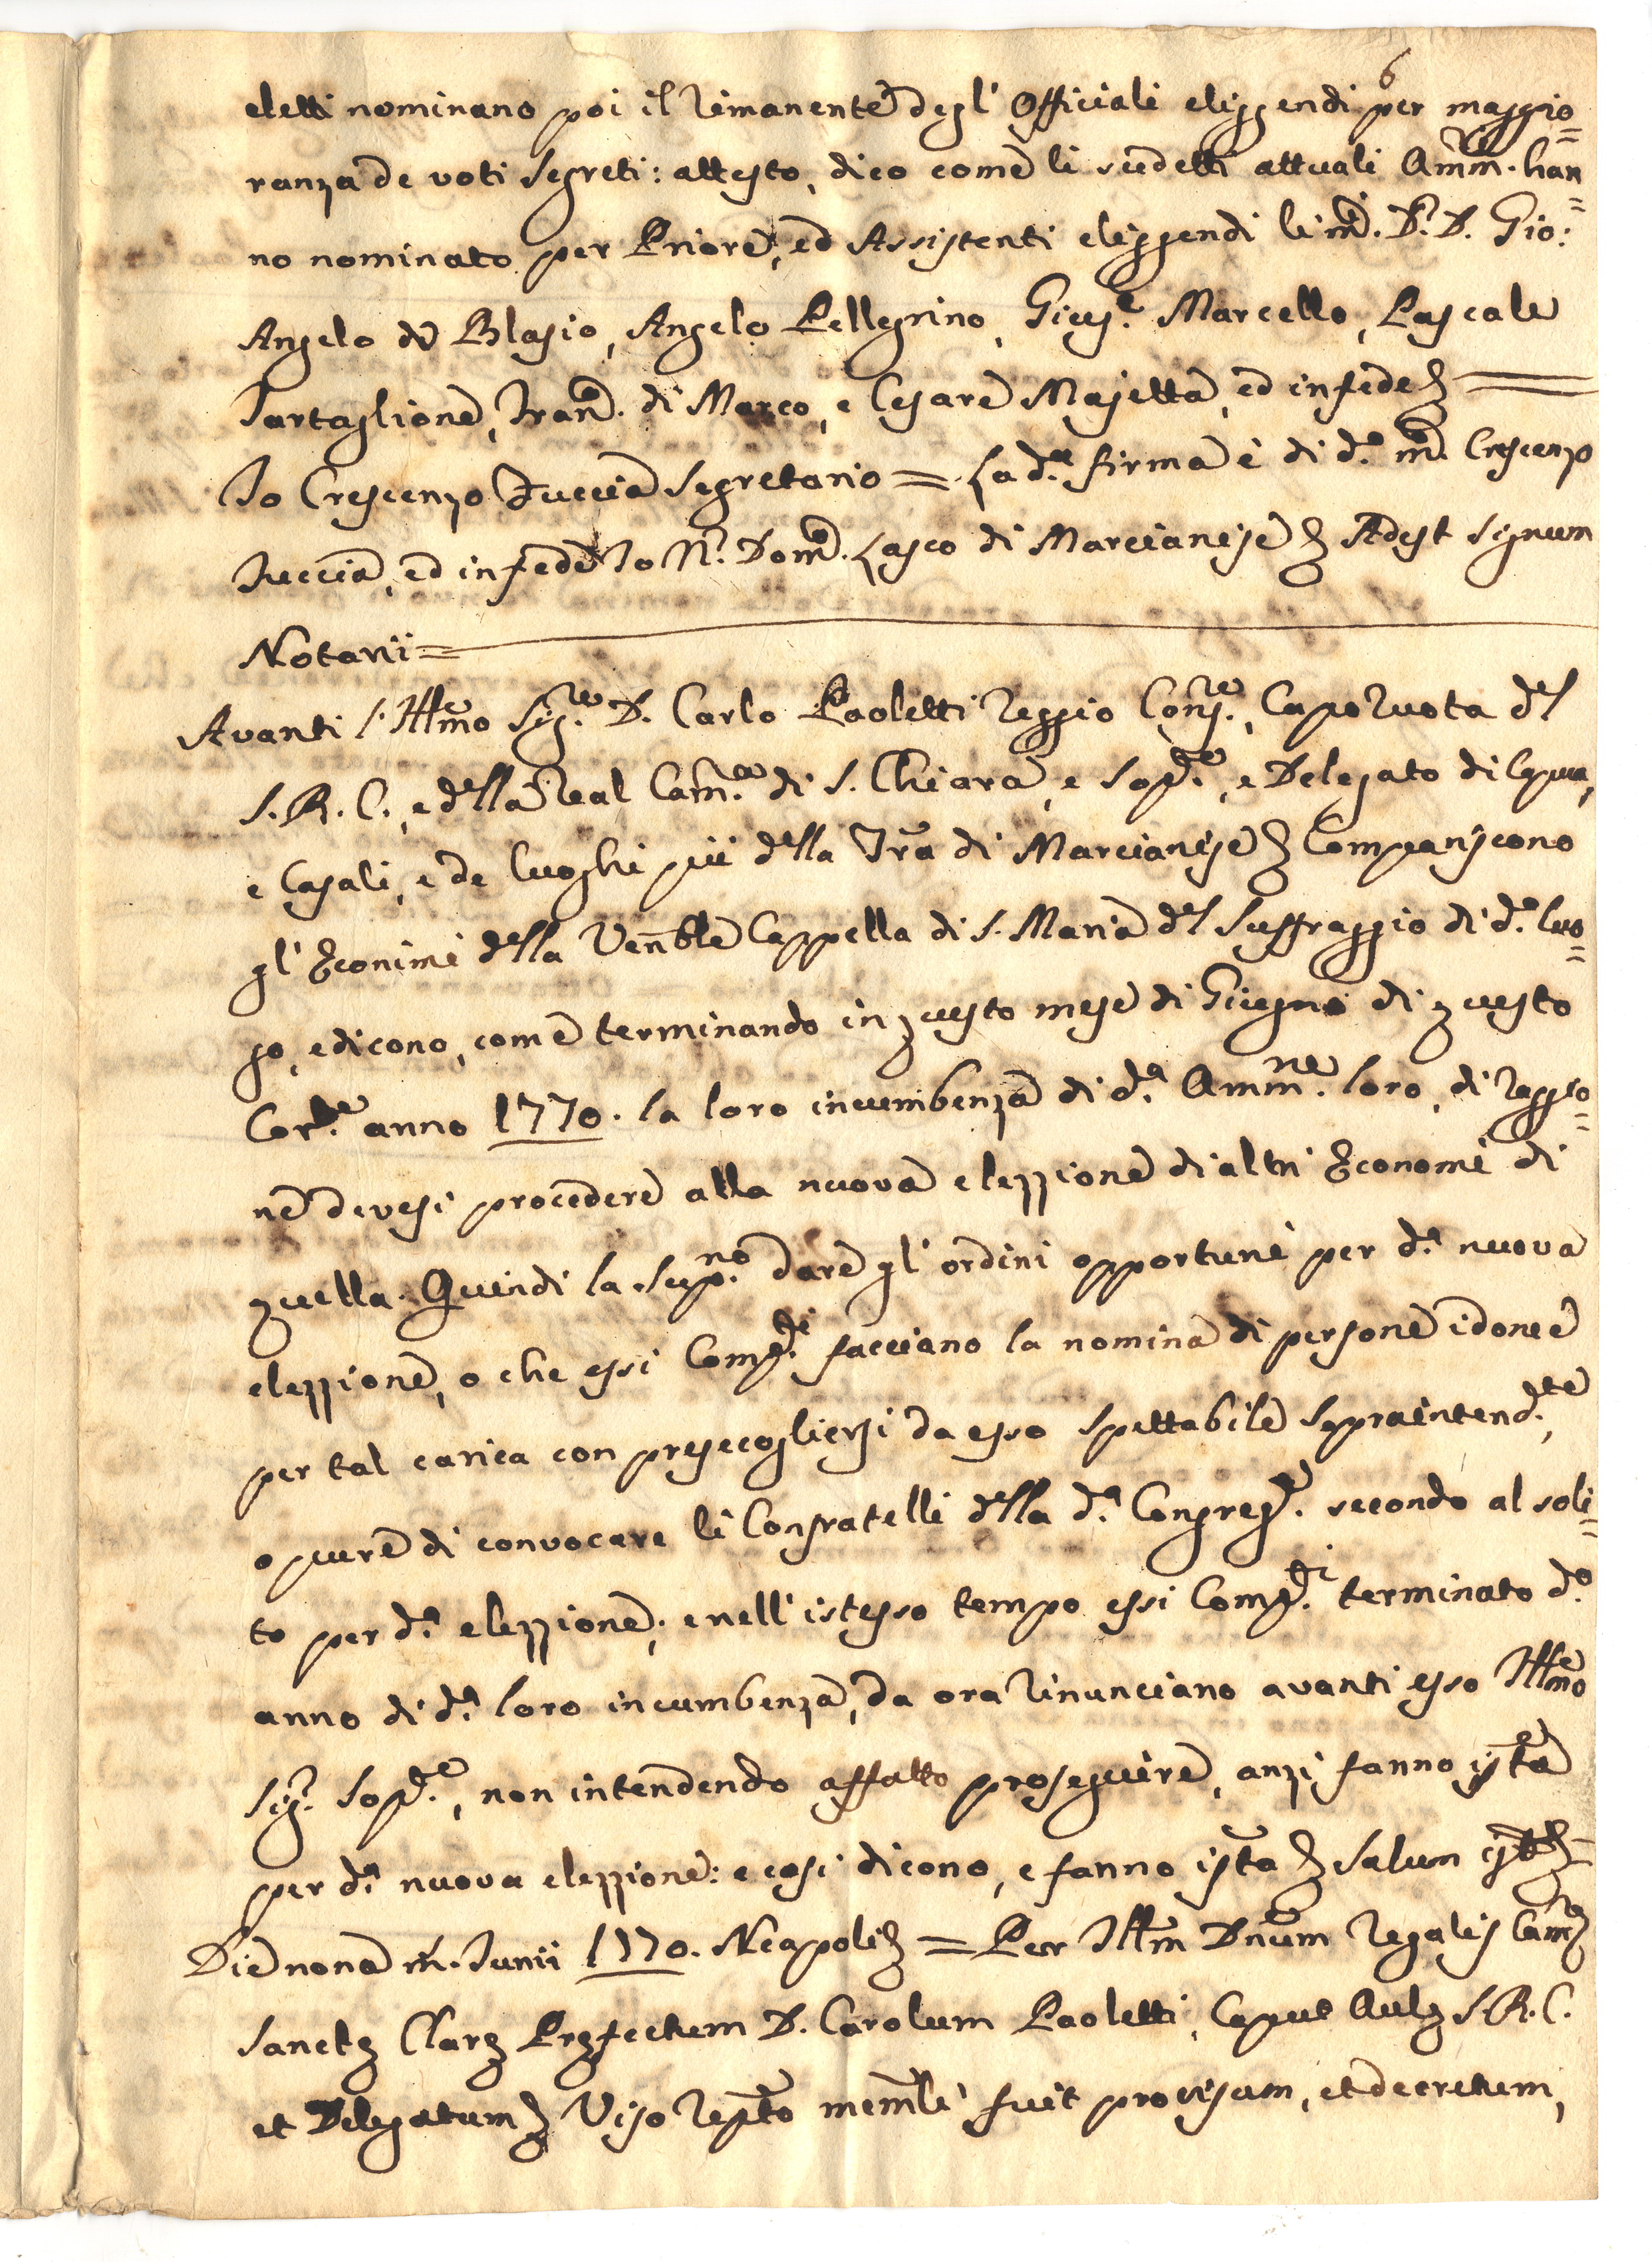 6
eletti nominano poi il rimanente degl' Officiali eliggendi per maggio=
ranza de voti segreti: attesto, dico come li sudetti attuali Amm.ri han=
no nominato per Priore, ed Assistenti eliggendi li m.ci D.r D. Gio:
Angelo di Blasio, Angelo Pellegrino, Gius.e Marcello, Pascale
Tartaglione, Fran.co di Marco, e Cesare Majetta, ed in fede &
Io Crescenzo Tuccia Segretario = La d.a firma è di d.o m.co Crescenzo
Tuccia, ed in fede Io N.r Dom.co Lasco di Marcianise & Adest signum
Notarii =
Avanti l'Ill.mo Sig.re D. Carlo Paoletti Reggio Cons.re, Capo Ruota del
S.R.C., e della Real Cam.a di S. Chiara, e Sop.te, e Delegato di Capua,
e Casali, e de luoghi pii della Tra di Marcianise & Compariscono
gl' Econimi della Venble Cappella di S. Maria del Suffraggio di d.o luo=
go, e dicono, come terminando in questo mese di Giugno di questo
Cor.te anno 1770. la loro incumbenza di d.a Amm.ne loro, di raggio=
ne devesi procedere alla nuova elezzione di altri Economi di
quella. Quindi la sup.no dare gl' ordini opportuni per d.a nuova
elezzione, o che essi Comp.ti facciano la nomina di persone idonee
per tal carica con presecogliersi da esso spettabile Sopraintend.te,
o pure di convocare li Confratelli della d.a Congreg.e secondo al soli=
to per d.a elezzione; e nell' istesso tempo essi Comp.ti terminato d.o
anno di d.a loro incumbenza, da ora rinunciano avanti esso Ill.mo
Sig.r Sop.te, non intendendo affatto proseguire, anzi fanno ista
per d.a nuova elezzione: e così dicono, e fanno ista & Salvum &
Die nona m. Junii 1770. Neapoli & = Per Illm Dnum Regalis Camæ
Sanctæ Claræ Præfectum D. Carolum Paoletti, Caput Aulæ S.R.C.
et Delegatum & Viso repto memli fuit provisum, et decretum,